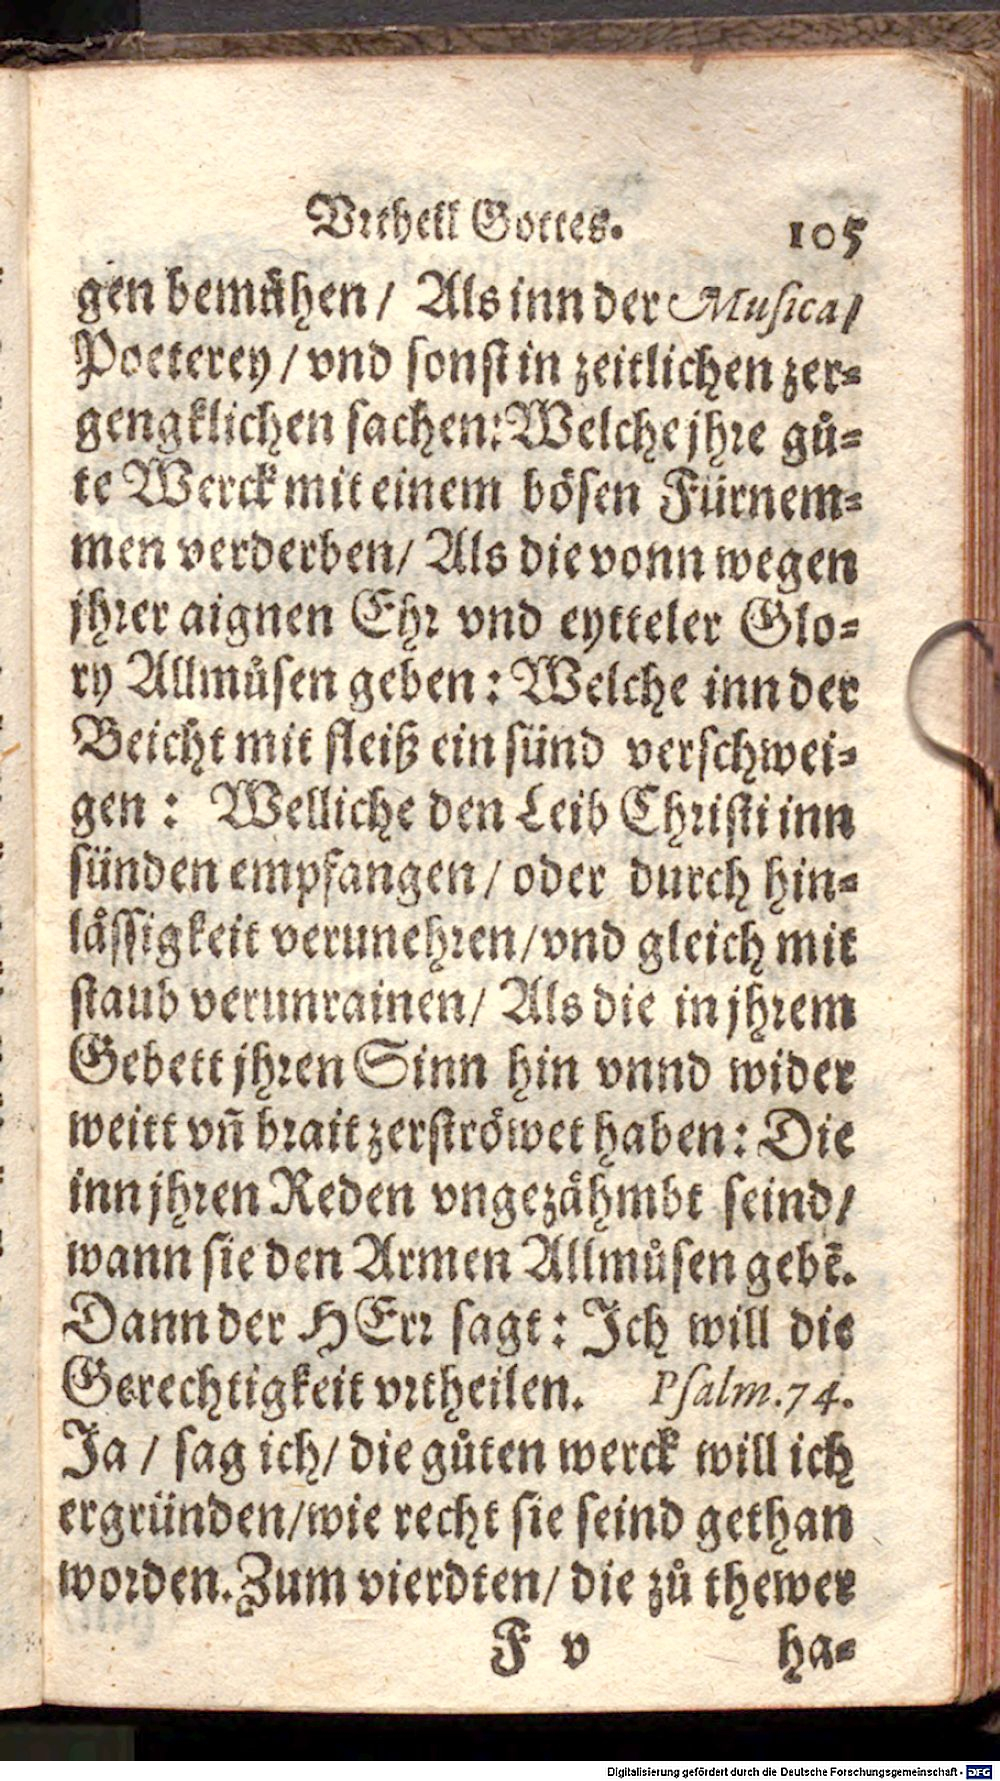 Vrtheil Gottes. 105
gen bemühen / Als inn der Musica /
Poeterey / vnd sonst in zeitlichen zer-
gengklichen sachen: Welche jhre gů-
te Werck mit einem bösen Fürnem-
men verderben / Als die vonn wegen
jhrer aignen Ehr vnd eytteler Glo-
ry Allmůsen geben : Welche inn der
Beicht mit fleiß ein sünd verschwei-
gen : Welliche den Leib Christi inn
sünden empfangen / oder durch hin-
låssigkeit verunehren / vnd gleich mit
staub verunrainen / Als die in jhrem
Gebett jhren Sinn hin vnnd wider
weitt vñ brait zerströwet haben : Die
inn jhren Reden vngezåhmbt seind /
wann sie den Armen Allmůsen gebẽ.
Dann der HErr sagt : Ich will die
Gerechtigkeit vrtheilen. Psalm. 74.
Ja / sag ich / die gůten werck will ich
ergründen / wie recht sie seind gethan
worden. Zum vierdten / die zů thewer
F v ha-
Digitalisierung gefördert durch die Deutsche Forschungsgemeinschaft - DFG